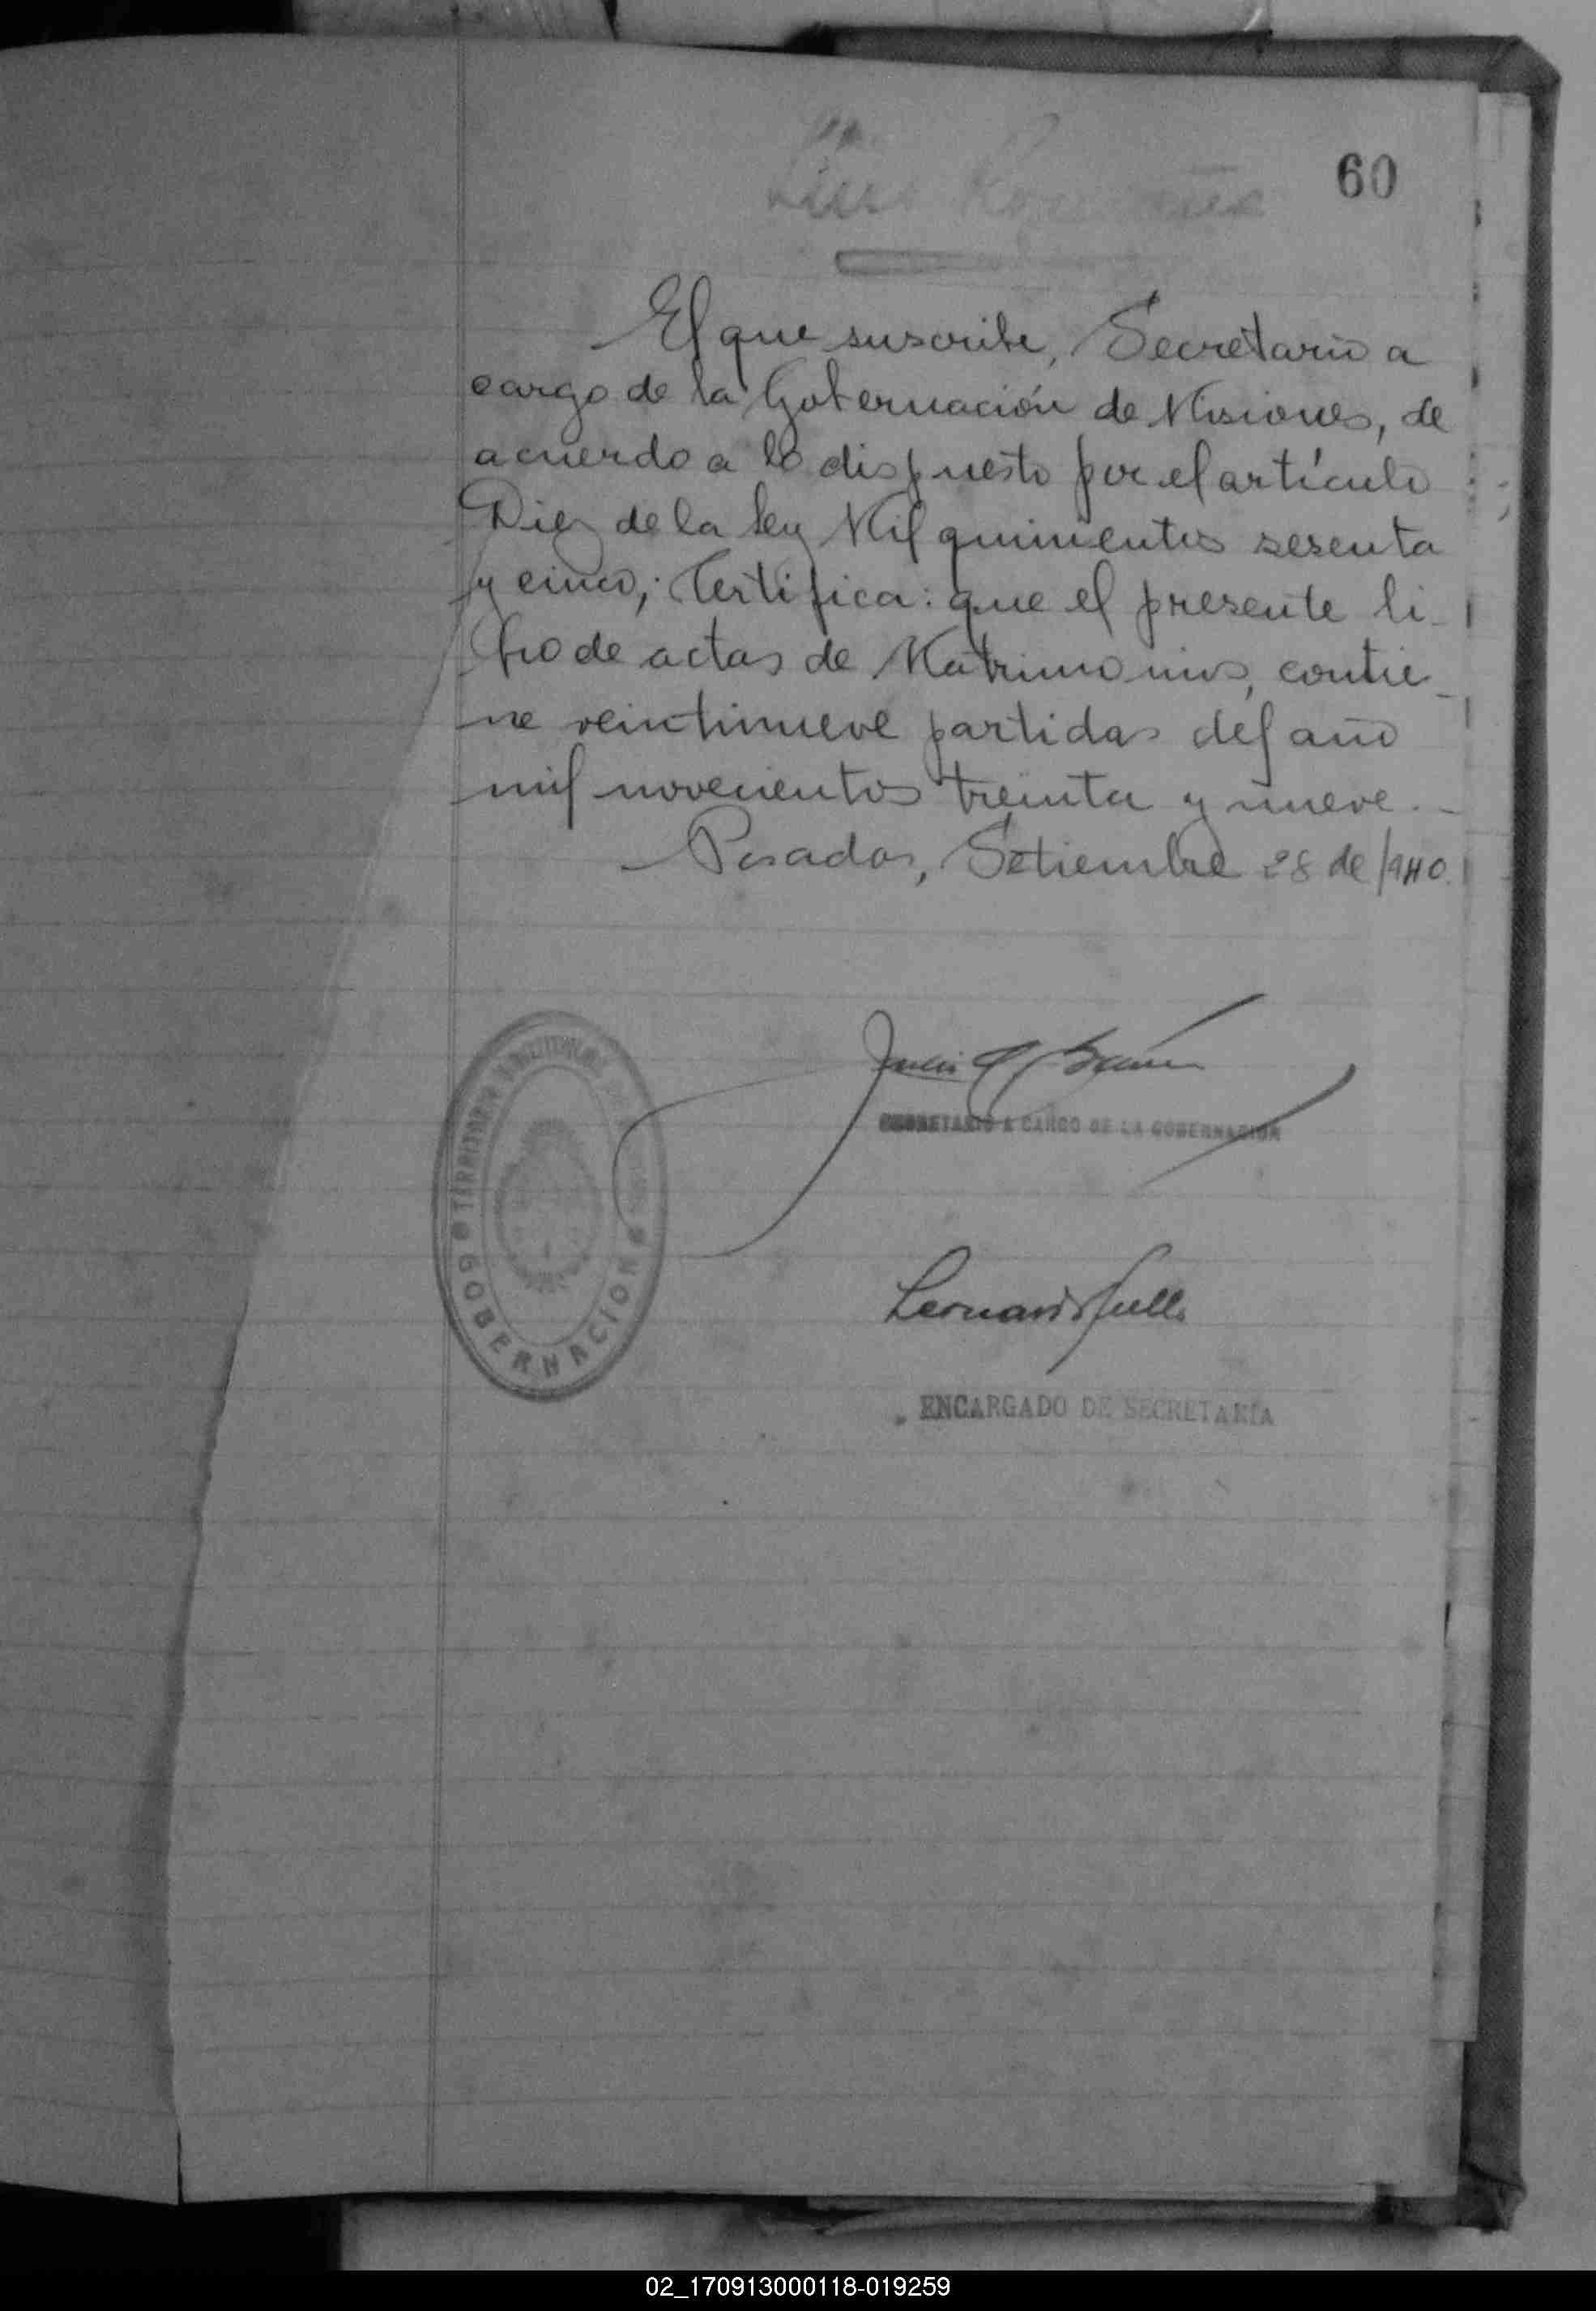 60
El que suscribe, Secretario a
cargo de la Gobernación de Misiones, de
acuerdo a lo dispuesto por el artículo
Diez de la Ley Mil quinientos sesenta
y cinco; Certifica: que el presente li-
bro de actas de Matrimonios, contie-
ne veintinueve partidas del año
mil novecientos treinta y nueve.-
Posadas, Setiembre 28 de 1940.
SECRETARIO A CARGO DE LA GOBERNACION
TERRITORIO
GOBERNACION
ENCARGADO DE SECRETARÍA
02_170913000118-019259